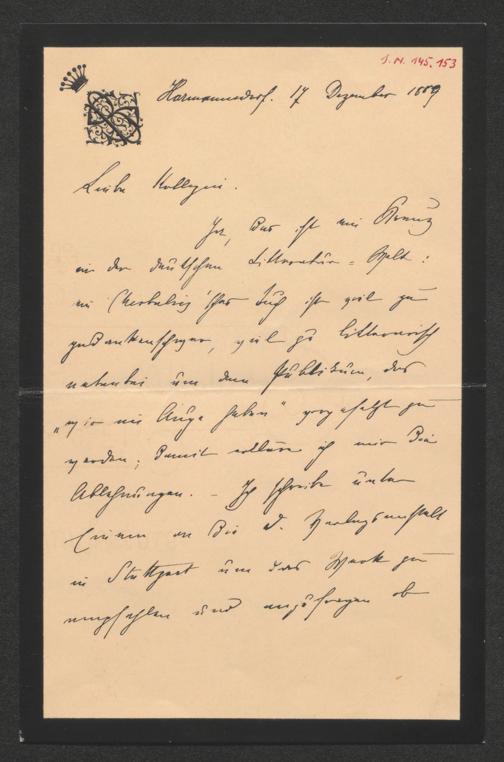 I. N. 145.153
Harmannsdorf. 17 Dezember 1889
Liebe Kollegin.
Ja, das ist ein Kreuz
in der deutschen Litteratur-Welt:
ein Cherbuliez'sches Buch ist viel zu
gedankenschwer, viel zu litterarisch
um dem Publikum, das
„wir im Auge haben" vorgesetzt zu
werden; damit erkläre ich mir die
Ablehnungen. – Ich schreibe unter
Einem an die D. Verlagsanstalt
in Stuttgart um das Werk zu
empfehlen und anzufragen ob